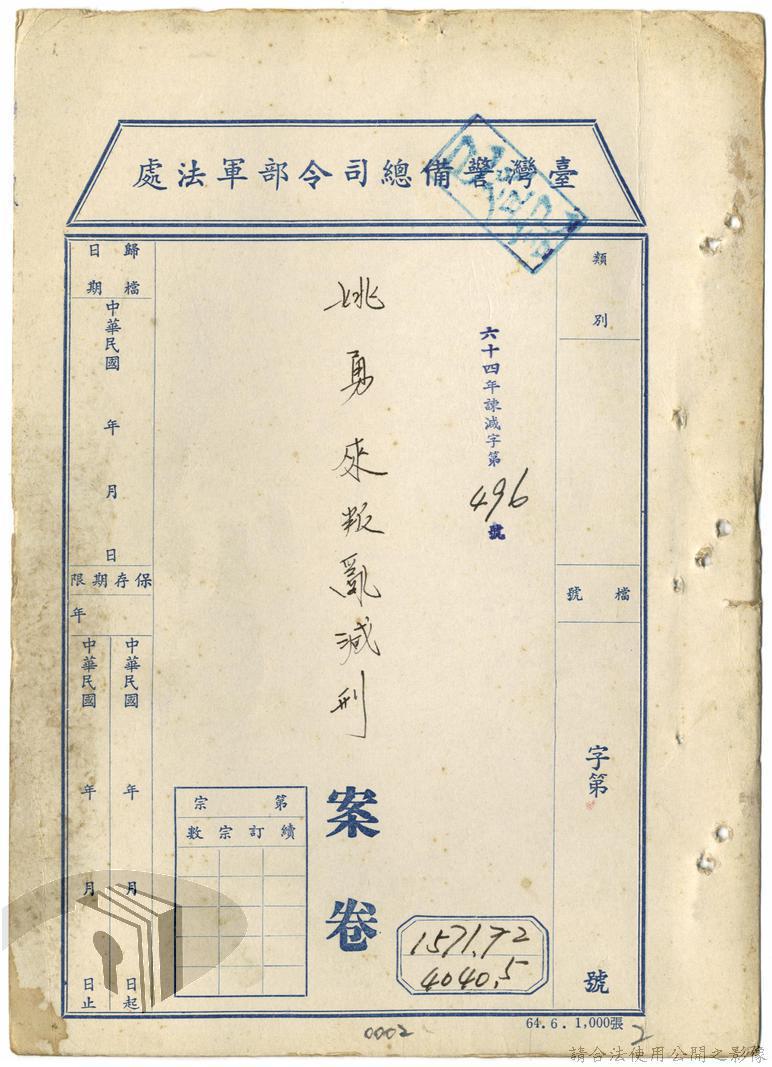 臺灣警備總司令部軍法處
類別
檔號
字第
號
六十四年諫減字第
496
號
姚勇來叛亂減刑
案卷
1571.72
4040.5
第宗
續訂宗數
歸檔日期
中華民國年月日
保存期限
年
中華民國年月日起
中華民國年月日止
64.6.1,000張
0002
2
請合法使用公開之影像